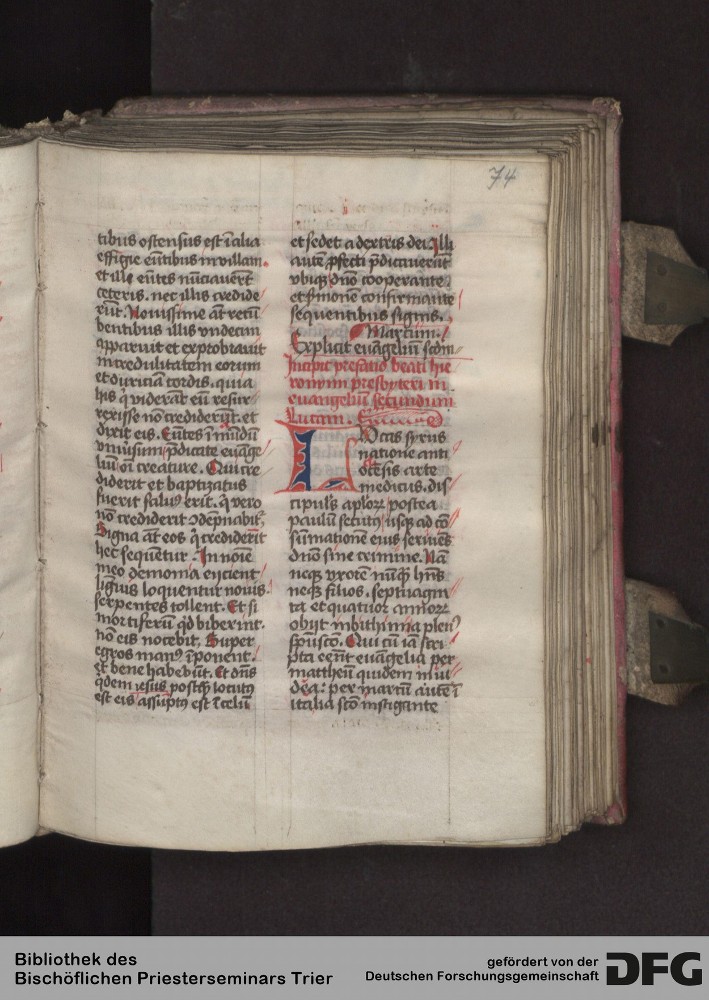 74
tibus ostensus est ī alia
effigie eūtibus in villam.
et illi eūtes nūciaverūt
ceteris. nec illis credide
rūt. Novissime aūt recū
bentibus illis undecim
apparuit et exprobravit
incredulitatem eorum
et duriciam cordis. quia
his q viderāt eū resur
rexisse nō crediderūt. et
dixit eis. Eūtes ī mūdū
univsum pdicate euāge
liū oī creature. Qui cre
diderit et baptizatus
fuerit salvꝰ erit. q vero
nō crediderit ꝯdēpnabit.
Signa aūt eos q crediderīt
hec sequētur. In noīe
meo demonia eijcient
ligwis loquentur novis.
serpentes tollent. Et si
mortiferū qd biberint.
nō eis nocebit. Super
egros manꝰ īponent.
et bene habebūt. Et dn̄s
qdem iesus postq̄ locutꝰ
est eis assūptꝰ est ī celū
et sedet a dextris dei. Illi
autē pfecti pdicaverūt
ubiq dn̄o cooperante.
et smonē confirmante
sequentibus signis.
Marcum.
Explicit euāgeliū scdm
Incipit prefatio beati hie
ronimi presbyteri in
euangeliū secundum
Lucam.
Lucas syrus
natione anti
ocēsis arte
medicus. dis
cipulꝰ aplorꝝ postea
paulū secutꝰ usq ad cō
sūmationē eius serviēs
dn̄o sine crimine. Nā
neqꝫ uxorē nūq hn̄s
neqꝫ filios. septuagin
ta et quatuor annorꝝ
obijt in bithinia plenꝰ
spūscō. Qui cū iā scri
pta eēnt euāgelia per
matheū quidem in iu
dea: per marcū autē ī
italia scō instigante
Bibliothek des
Bischöflichen Priesterseminars Trier
gefördert von der
Deutschen Forschungsgemeinschaft
DFG